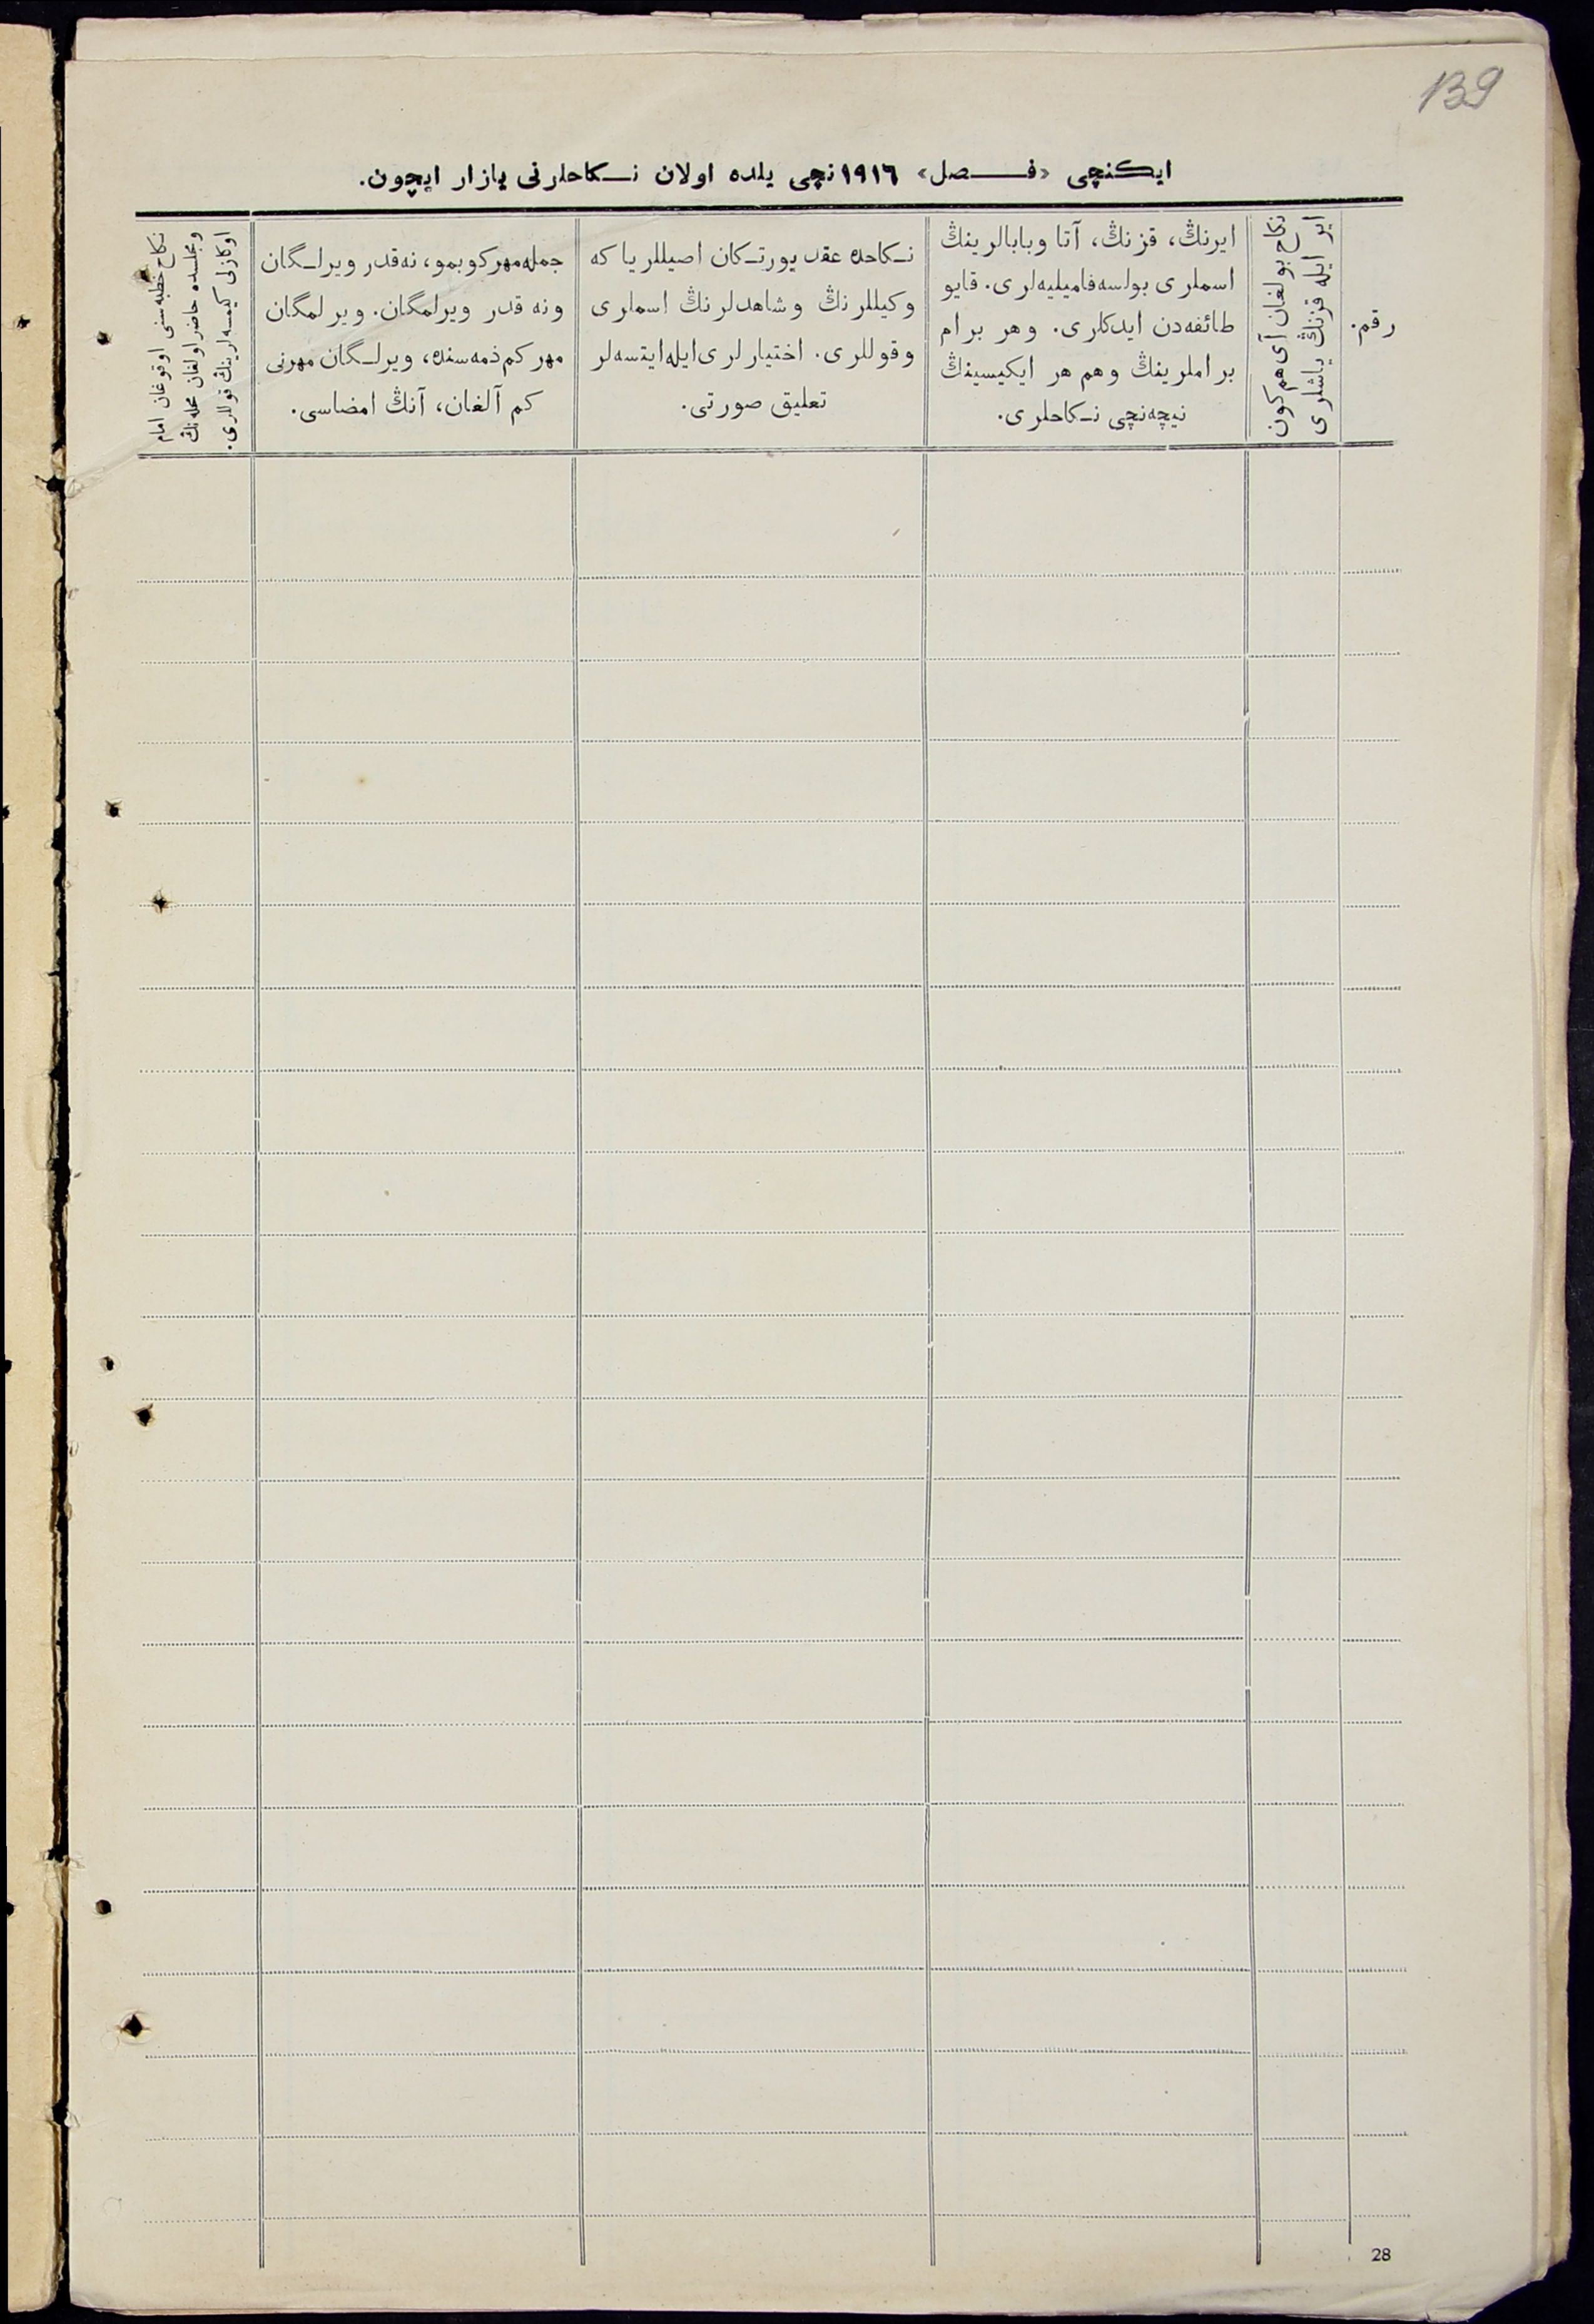 139
ایکنچی «فصل» ١٩١٦نچی یلده اولان نکاحلرنی یازار ایچون.
رقم.
نکاح بولغان آی هم کون
ایر ایله قزنڭ یاشلری
ایرنڭ، قزنڭ، آتا وبابالرینڭ
اسملری بولسه فامیلیه‌لری. قایو
طائفه‌دن ایدکلری. وهر برام
براملرینڭ وهم هر ایکیسینڭ
نیچه‌نچی نکاحلری.
نکاحده عقد یورتکان اصیللر یا که
وکیللرنڭ وشاهدلرنڭ اسملری
وقوللری. اختیارلری ایله ایتسه‌لر
تعلیق صورتی.
جمله مهر کوبمو، نه‌قدر ویرلگان
ونه قدر ویرلمگان. ویرلمگان
مهر کم ذمه‌سنده، ویرلگان مهرنی
کم آلغان، آنڭ امضاسی.
نکاح خطبه‌سنی اوقوغان امام
ومجلسده حاضر اولغان محله‌نڭ
اوکازلی کیمسه‌لرینڭ قوللری.
28